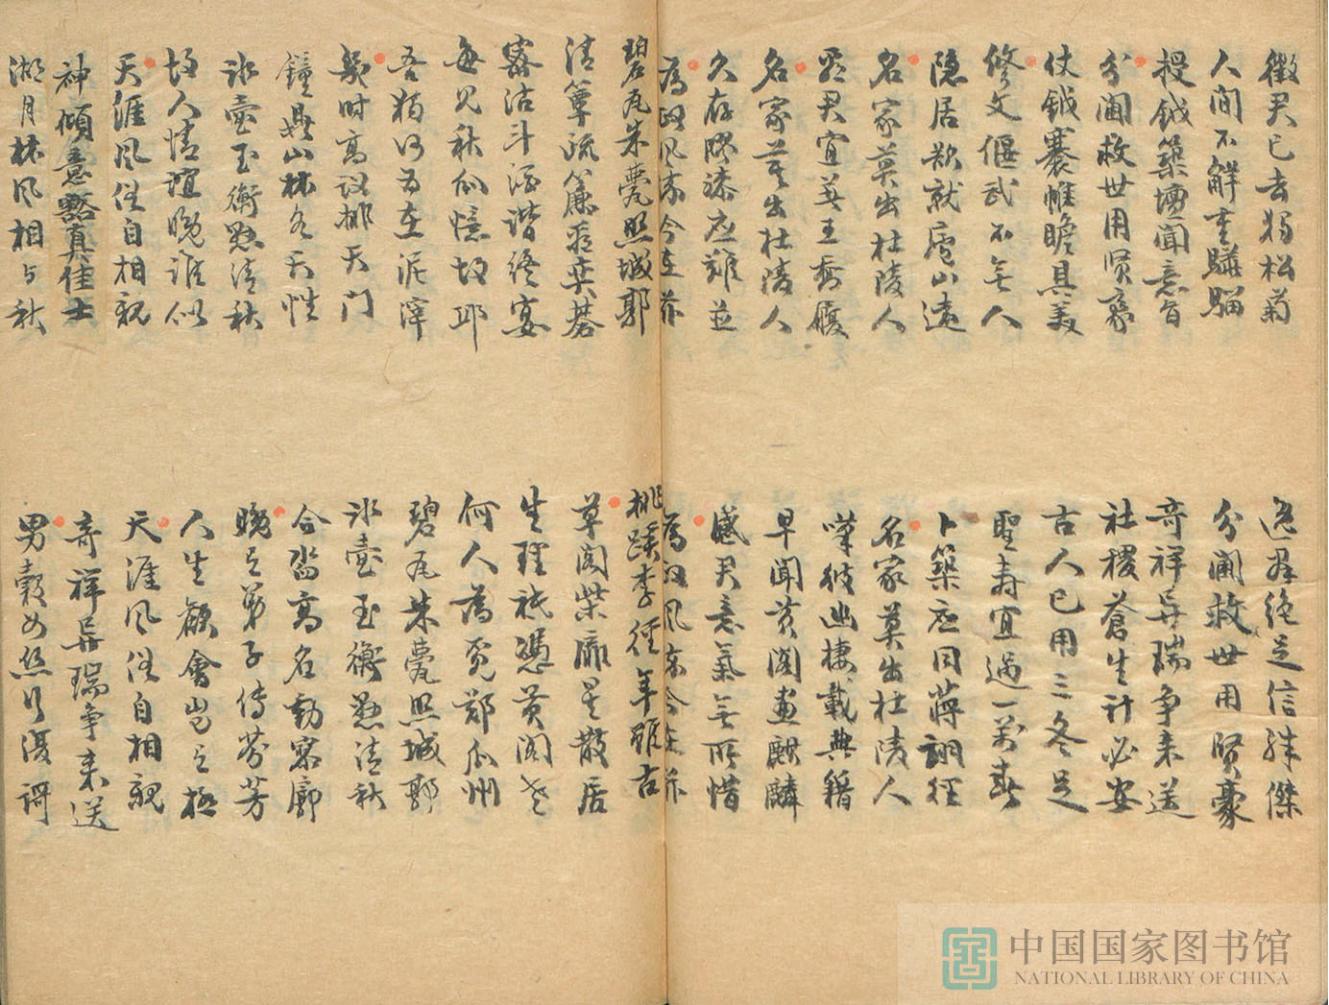 徵君已去獨松菊
人間不解重驊騮
授鉞築壇聞意旨
分閫救世用贤豪
仗鉞褰帷瞻具美
修文偃武不無人
隱居欲就廬山遠
名家莫出杜陵人
君宜著王喬履
名家莫出杜陵人
久存膠漆應難並
為政風流今在茲
逸群絕足信殊傑
分閫救世用賢豪
奇祥異瑞爭来送
社稷蒼生計必安
古人已用三冬足
聖壽宜過一萬春
卜築應同蔣詡徑
名家莫出杜陵人
嘆彼幽棲載典籍
早聞黃閣畫麒麟
感君意氣無所惜
為政風流今在茲
碧瓦朱甍照城郭
清簟疏簾看弈碁
密沽斗酒諧終宴
每見秋瓜憶故邱
吾獨何為在泥滓
幾時高議排天门
鐘鼎山林各天性
冰壺玉衡懸清秋
故人情誼晚誰似
天涯風俗自相親
神傾意豁真佳士
湖月林風相与秋
桃蹊李徑年雖古
草閣柴扉星散居
生理祗憑黃閣老
何人為覓鄭瓜州
碧瓦朱甍照城郭
冰壺玉衡懸清秋
合沓高名動寥廓
晚有弟子傳芬芳
人生歡會豈有極
天涯風俗自相親
奇祥異瑞爭来送
男穀女絲行復歌
中国国家图书馆
NATIONAL LIBRARY OF CHINA